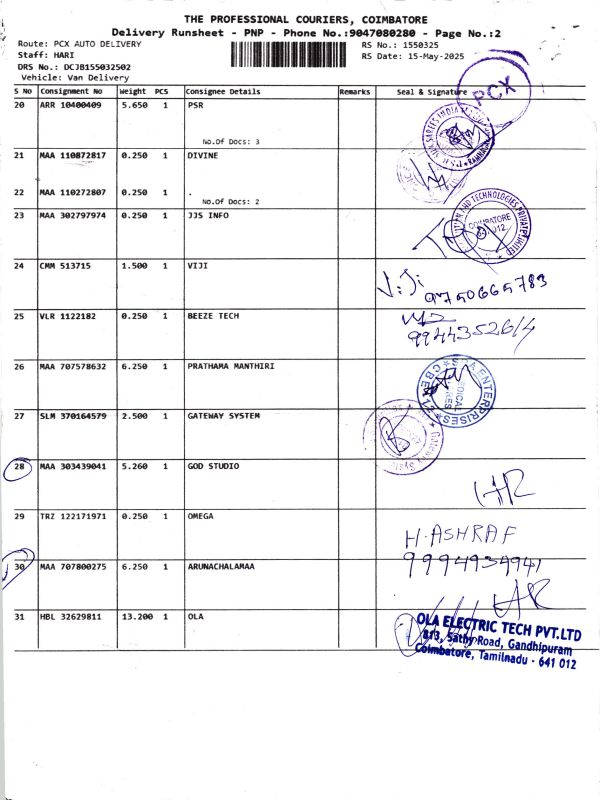 THE PROFESSIONAL COURIERS, COIMBATORE
Delivery Runsheet - PNP - Phone No.:9047080280 - Page No.:2
Route: PCX AUTO DELIVERY
RS No.: 1550325
Staff: HARI
RS Date: 15-May-2025
DRS No.: DCJB155032502
Vehicle: Van Delivery
PCX
S NO Consignment No Weight PCS Consignee Details Remarks Seal & Signature
20 ARR 10400409 5.650 1 PSR
No.Of Docs: 3
21 MAA 110872817 0.250 1 DIVINE
22 MAA 110272807 0.250 1 .
No.Of Docs: 2
23 MAA 302797974 0.250 1 JJS INFO
TECHNOLOGIES PRIVATE LIMITED
COIMBATORE
24 CMM 513715 1.500 1 VIJI
Viji
9750665783
25 VLR 1122182 0.250 1 BEEZE TECH
9944352614
26 MAA 707578632 6.250 1 PRATHAMA MANTHIRI
ENTERPRISES
27 SLM 370164579 2.500 1 GATEWAY SYSTEM
28 MAA 303439041 5.260 1 GOD STUDIO
29 TRZ 122171971 0.250 1 OMEGA
H. ASHRAF
9994934941
30 MAA 707800275 6.250 1 ARUNACHALAMAA
31 HBL 32629811 13.200 1 OLA
OLA ELECTRIC TECH PVT.LTD
813, Sathy Road, Gandhipuram
Coimbatore, Tamilnadu - 641 012